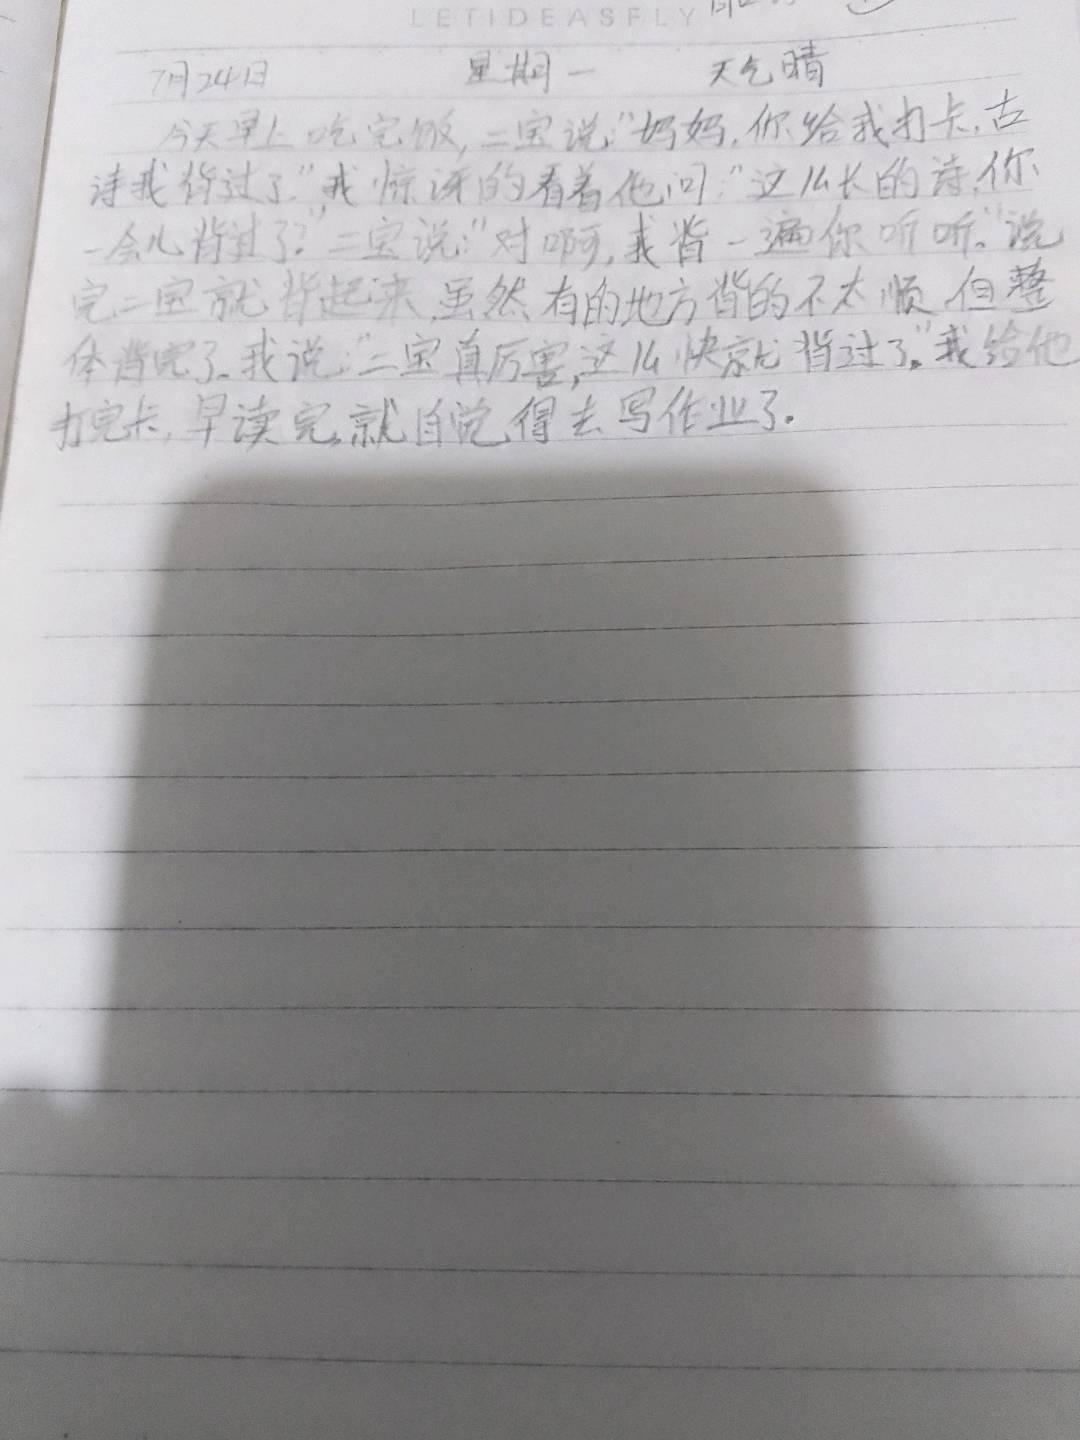 LETIDEASFLY
7月24日 星期一 天气晴
今天早上吃完饭,二宝说:"妈妈,你给我打卡,古
诗我背过了."我惊讶的看着他问:"这么长的诗,你
一会儿背过了?"二宝说:"对啊,我背一遍你听听."说
完二宝就背起来,虽然有的地方背的不太顺,但整
体背完了.我说:"二宝真厉害,这么快就背过了."我给他
打完卡,早读完,就自觉得去写作业了.